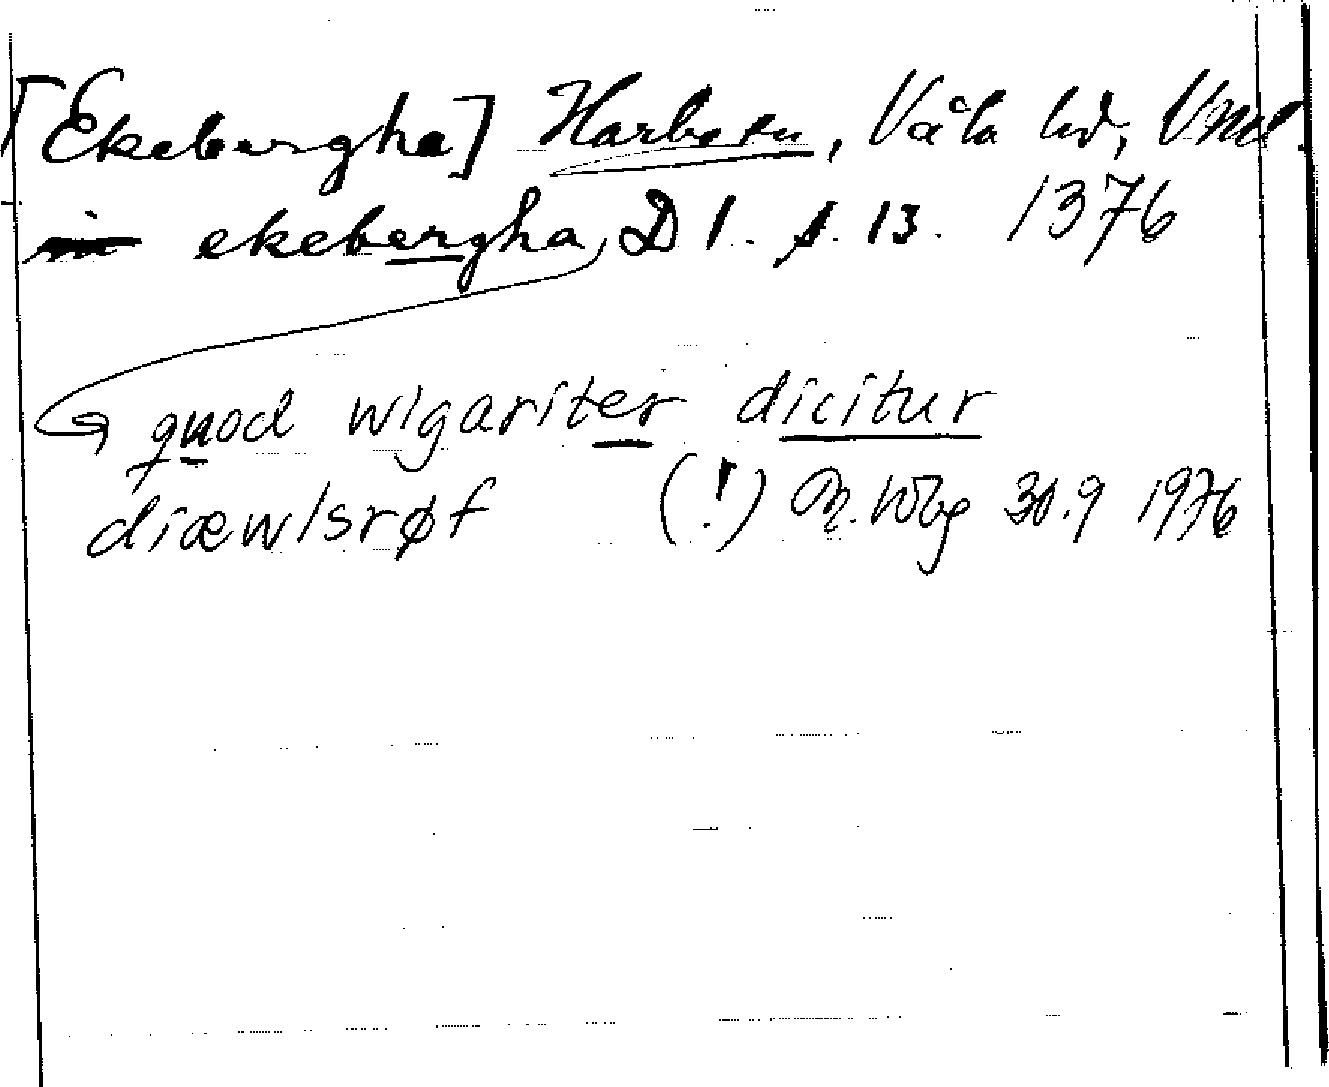 [Ekebergha] Harbo sn, Våla hd, Vmd.
in ekebergha, D 1. s. 13. 1376
quod wlgariter dicitur
diæwlsrøf (!) Wbg 30.9 1976